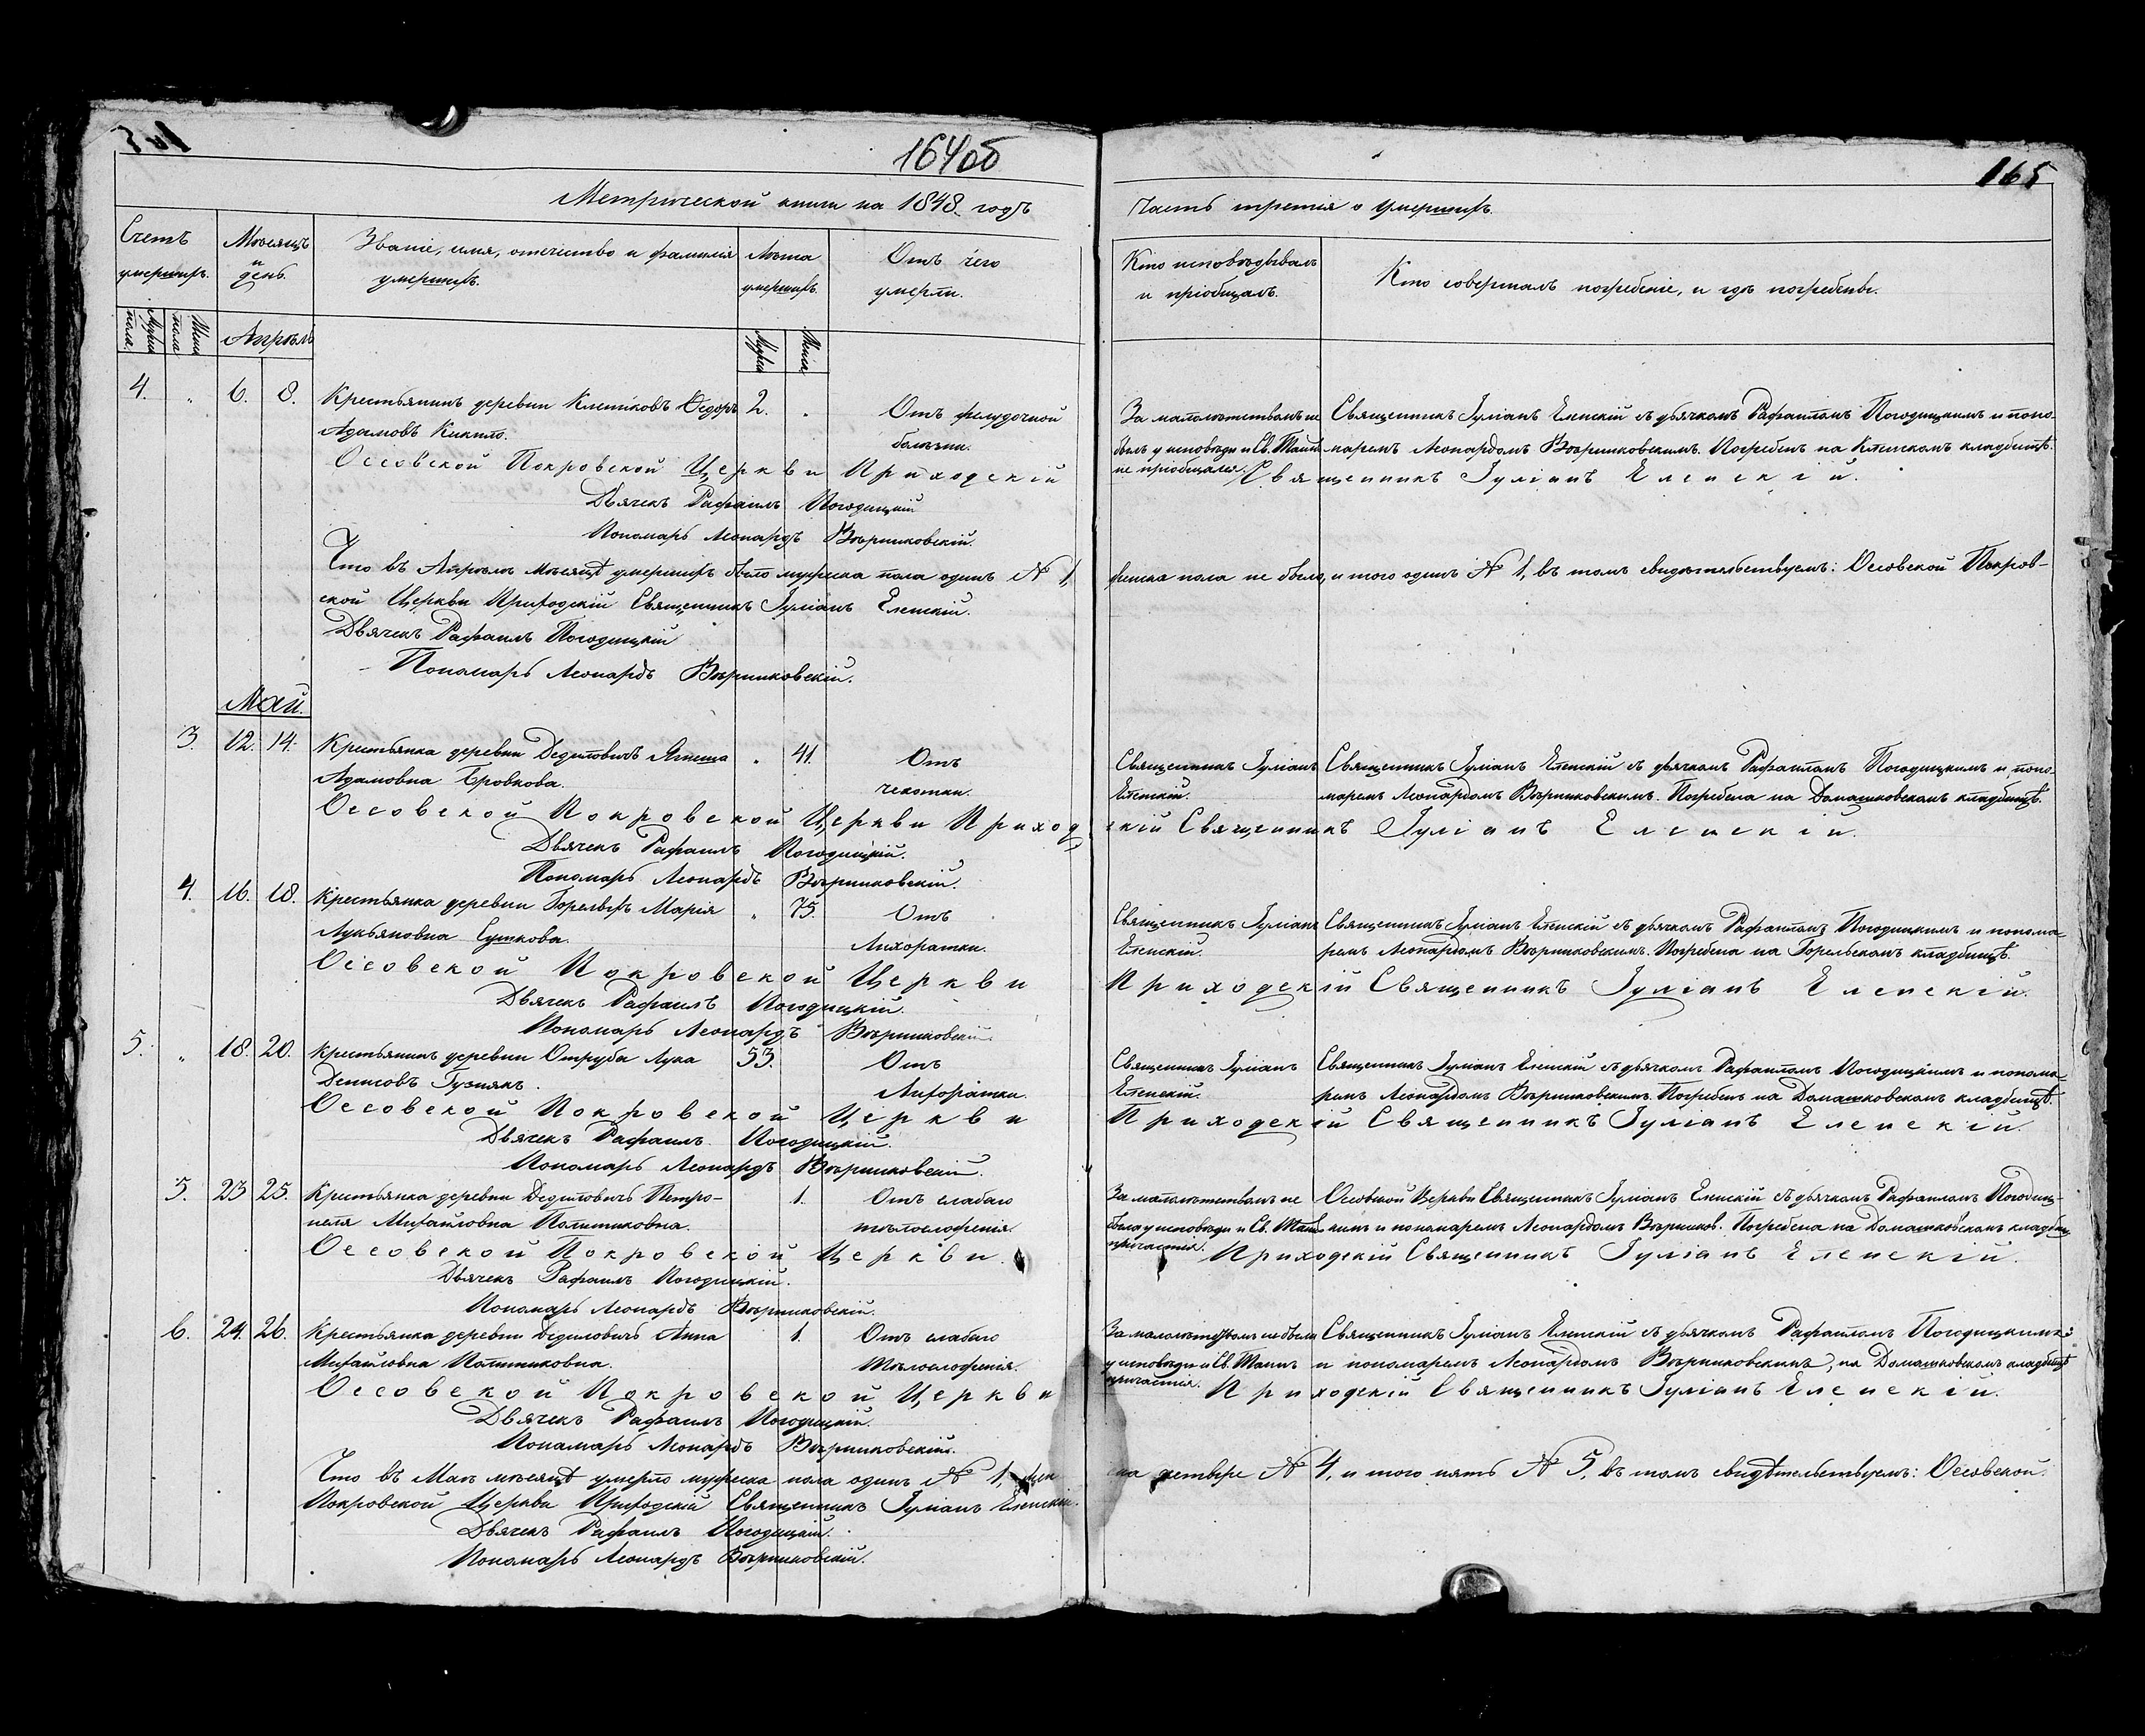 164об
165
Метрической книги на 1848. годъ
Часть третія о умершихъ.
Счетъ умершихъ.
Мѣсяцъ и день.
Званіе, имя, отчество и фамилія умершихъ.
Лѣта умершихъ.
Отъ чего умерли.
Кто исповѣдывалъ и пріобщалъ.
Кто совершалъ погребеніе, и гдѣ погребены.
Апрѣль
4. " 6. 8. Крестьянинъ деревни Клетковъ Ѳедоръ 2. " Отъ желудочной
Адамовъ Кикило. болѣзни.
За малолѣтствомъ не
былъ у исповѣди и Св. Таинъ
не пріобщался.
Священникъ Іуліанъ Еленскій съ дьячкомъ Рафаиломъ Погодицкимъ и поно-
маремъ Леонардомъ Вѣржиковскимъ. Погребенъ на кладбищѣ.
Оссовской Покровской Церкви Приходскій Священникъ Іуліанъ Еленскій.
Дьячекъ Рафаилъ Погодицкій
Пономарь Леонардъ
Что въ Апрѣлѣ мѣсяцѣ умершихъ было мужеска пола одинъ № 1, женска пола не было, и того одинъ № 1, въ томъ свидѣтельствуемъ: Оссовской Покров-
ской Церкви Приходскій Священникъ Іуліанъ Еленскій.
Дьячекъ Рафаилъ Погодицкій
Пономарь Леонардъ
Май.
3. 12. 14. Крестьянка деревни Дедиловичъ Агнеша " 41. Отъ
Адамовна Бровкова. чехотки.
Священникъ Іуліанъ
Еленскій.
Священникъ Іуліанъ Еленскій съ дьячкомъ Рафаиломъ Погодицкимъ и поно-
маремъ Леонардомъ Погребена на Домашковскомъ кладбищѣ.
Оссовской Покровской Церкви Приходскій Священникъ Іуліанъ Еленскій.
Дьячекъ Рафаилъ Погодицкій.
Пономарь Леонардъ
4. 16. 18. Крестьянка деревни Горелыхъ Марія " 75. Отъ
Лукьяновна Сушкова. Лихоратки.
Священникъ Іуліанъ
Еленскій.
Священникъ Іуліанъ Еленскій съ дьячкомъ Рафаиломъ Погодицкимъ и понома-
ремъ Леонардомъ Погребена на Горельскомъ кладбищѣ.
Оссовской Покровской Церкви Приходскій Священникъ Іуліанъ Еленскій.
Дьячекъ Рафаилъ Погодицкій.
Пономарь Леонардъ
5. " 18. 20. Крестьянинъ деревни Отруба Лука 53. Отъ
Денисовъ Гузнякъ. Лихоратки.
Священникъ Іуліанъ
Еленскій.
Священникъ Іуліанъ Еленскій съ дьячкомъ Рафаиломъ Погодицкимъ и понома-
ремъ Леонардомъ Погребенъ на Домашковскомъ кладбищѣ.
Оссовской Покровской Церкви Приходскій Священникъ Іуліанъ Еленскій.
Дьячекъ Рафаилъ Погодицкій.
Пономарь Леонардъ
5. 23 25. Крестьянка деревни Дедиловичъ Петро- 1. Отъ слабаго
неля Михайловна тѣлосложенія.
За малолѣтствомъ не
была у исповѣди и Св. Таинъ
причастія.
Оссовской Церкви Священникъ Іуліанъ Еленскій съ дьячкомъ Рафаиломъ Погодиц-
кимъ и пономаремъ Леонардомъ Погребена на Домашковскомъ кладбищ
Оссовской Покровской Церкви. Приходскій Священникъ Іуліанъ Еленскій.
Дьячекъ Рафаилъ Погодицкій.
Пономарь Леонардъ
6. 24. 26. Крестьянка деревни Дедиловичъ Анна 1. Отъ слабаго
Михайловна тѣлосложенія.
За малолѣтствомъ не была
у исповѣди и Св. Таинъ
причастія.
Священникъ Іуліанъ Еленскій съ дьячкомъ Рафаиломъ Погодицкимъ
и пономаремъ Леонардомъ на Домашковскомъ кладбищѣ
Оссовской Покровской Церкви Приходскій Священникъ Іуліанъ Еленскій.
Дьячекъ Рафаилъ Погодицкій.
Пономарь Леонардъ
Что въ Маѣ мѣсяцѣ умерло мужеска пола одинъ № 1, женска четыре № 4, и того пять № 5, въ томъ свидѣтельствуемъ: Оссовской
Покровской Церкви Приходскій Священникъ Іуліанъ Еленскій.
Дьячекъ Рафаилъ Погодицкій.
Пономарь Леонардъ